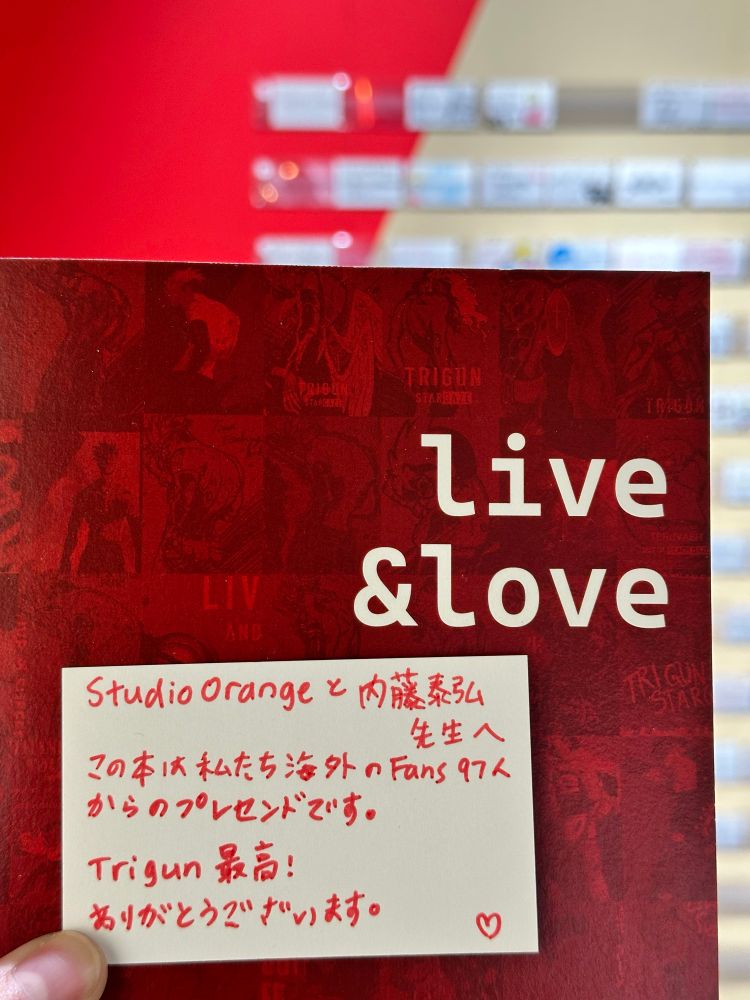 TRIGUN
STARGAZE
TRIGUN
STARGAZE
TRIGUN
live
&love
LIV
AND
TRIGUN
STAR
Studio Orangeと内藤泰弘
先生へ
この本は私たち海外のFans 97人
からのプレセンドです。
Trigun 最高!
ありがとうございます。